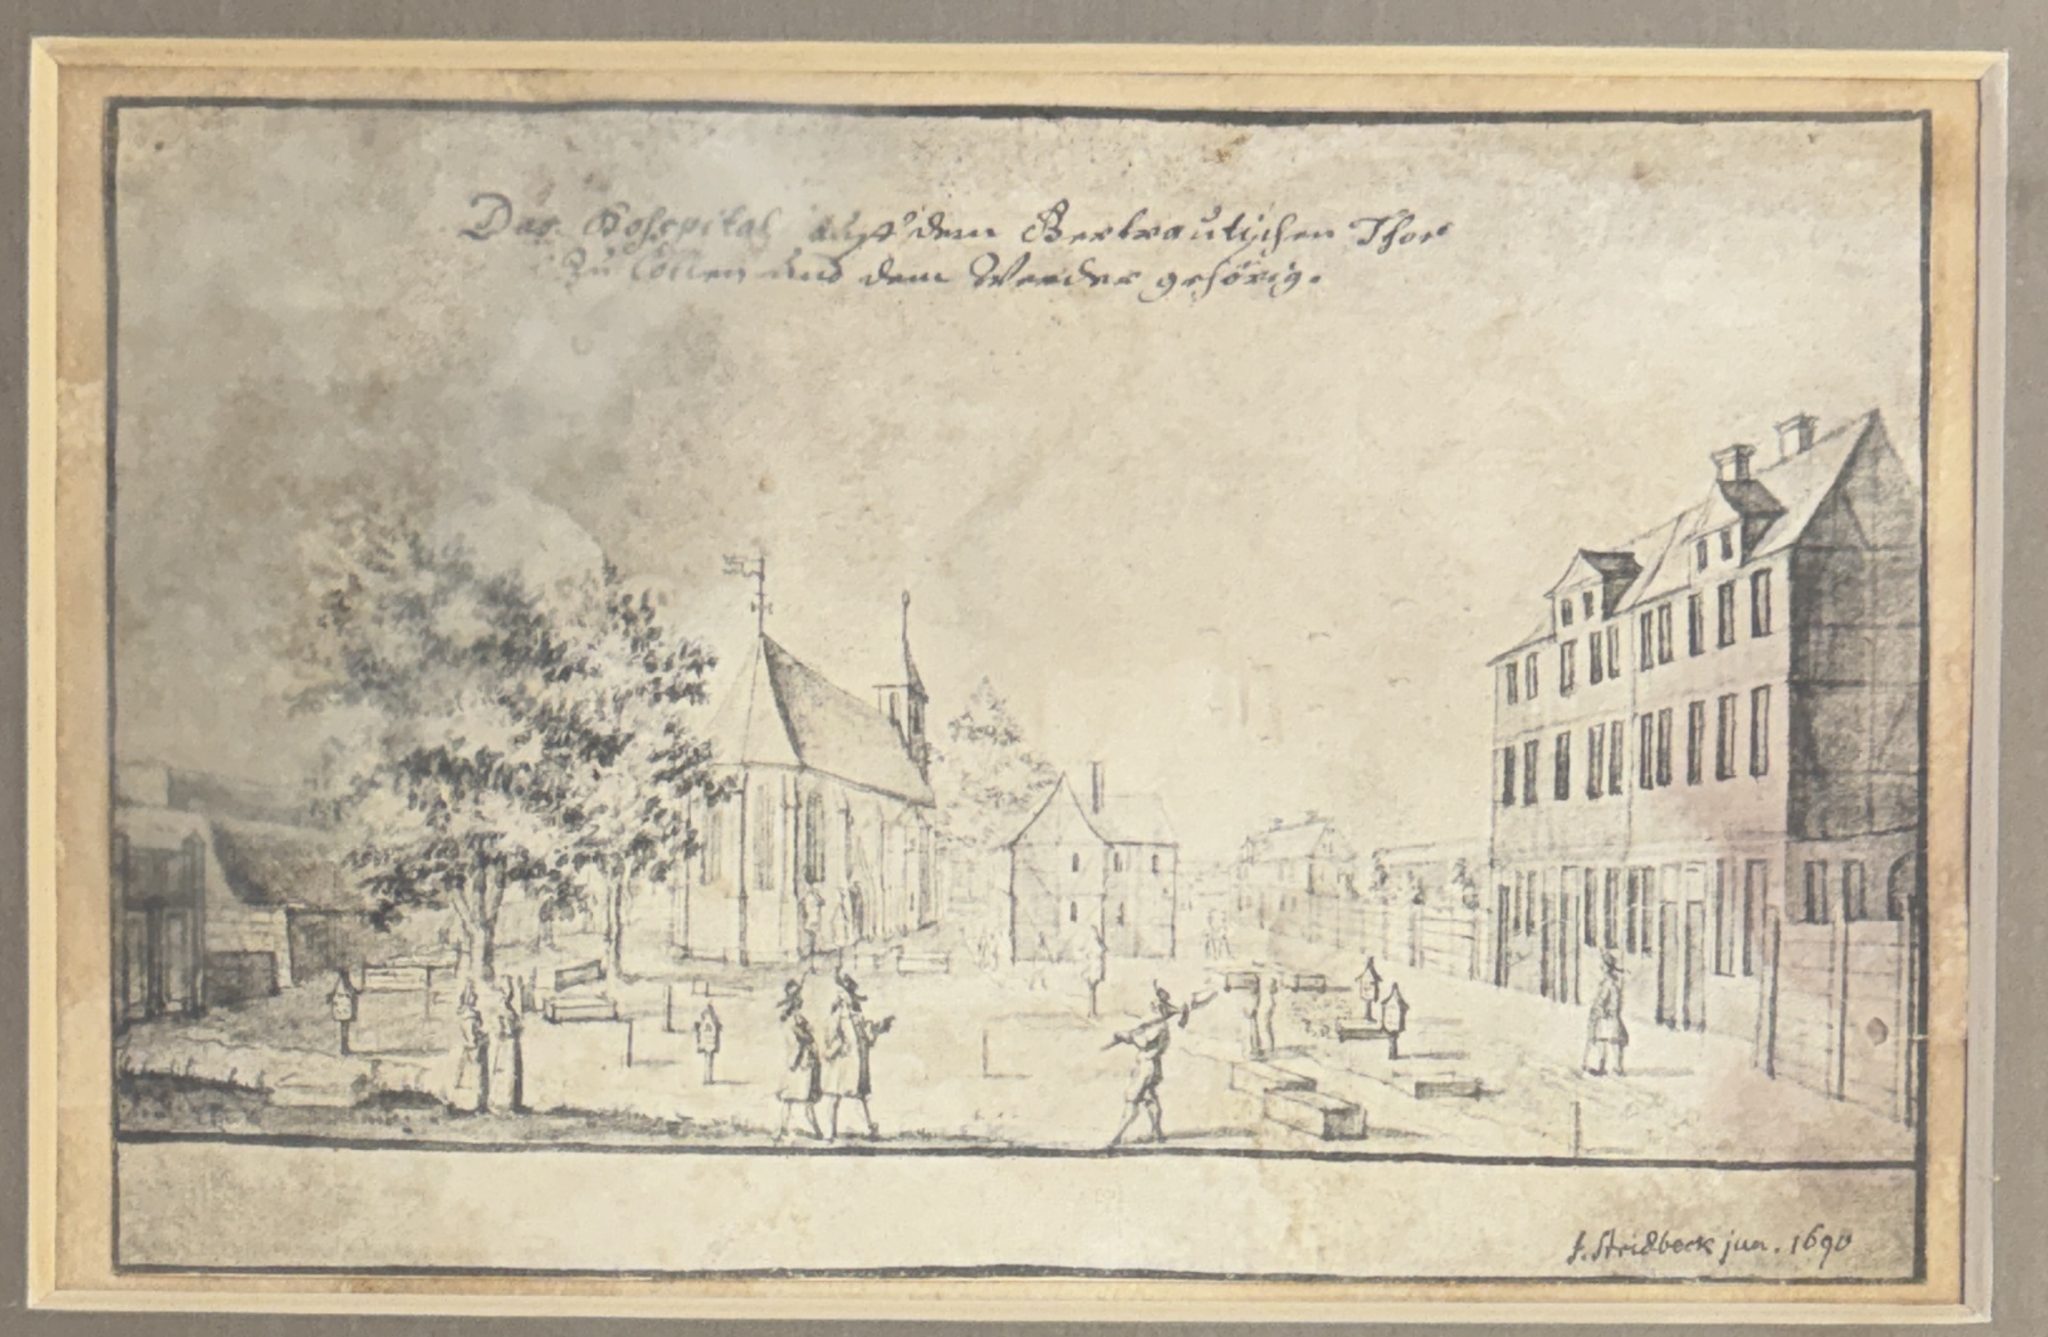 Das Hospital auß dem Gertrautischen Thor
Zu Cöllen und dem Werder gehörig.
J. Stridbeck jun. 1690